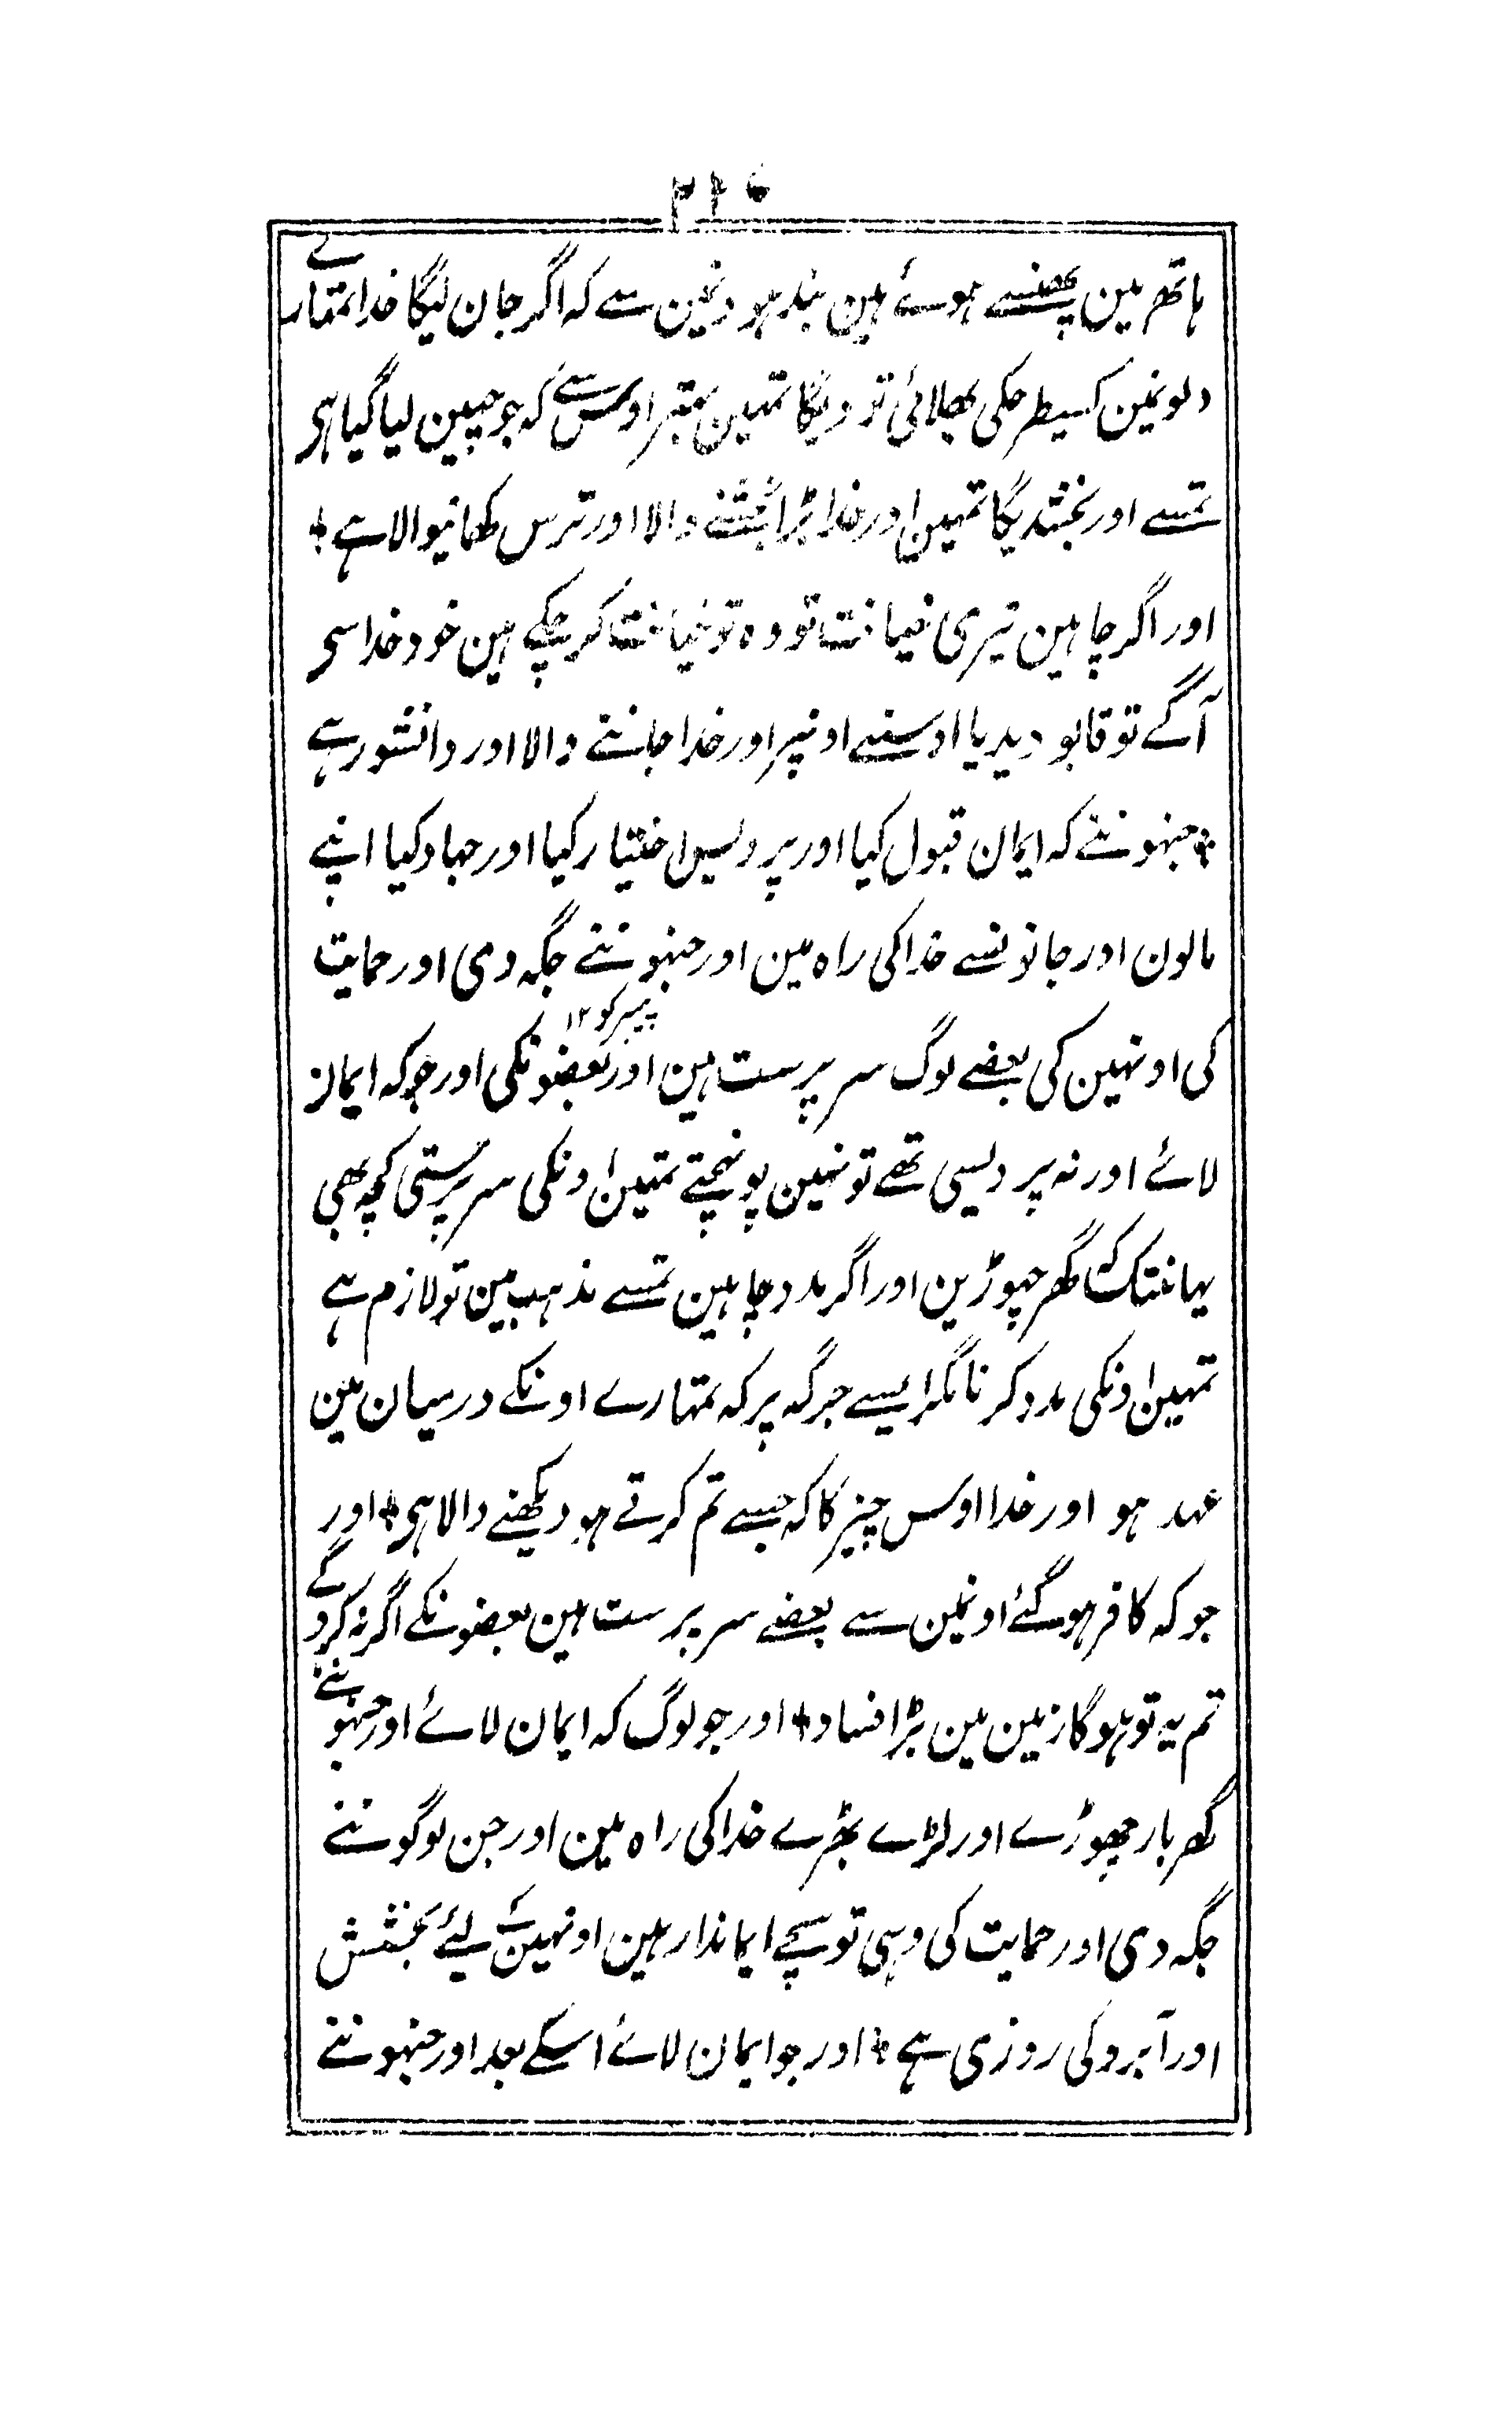 ہاتھ مین پھنسے ہوئے ہین بندہوونمین سے کہ اگر جان لیگا خدا تمہارے
دلونمین کسیطرحکی بھلائی تو دیگا تمہین بہتر اوس سے کہ جو چھین لیا گیا ہی
تمسے اور بخشدیگا تمہین اور خدا بڑا بخشنے والا اور ترس کھانیوالا ہے ٭
اور اگر چاہین تیری خیانت تو وہ تو خیانت کر چکے ہین خود خدا سی
آگے تو قابو دیدیا اوسنے اونپر اور خدا جاننے والا اور دانشور ہے
٭ جنہوننے کہ ایمان قبول کیا اور پردیس اختیار کیا اور جہاد کیا اپنے
مالون اور جانونسے خدا کی راہ مین اور جنہوننے جگہ دی اور حمایت
پیمبر کو ۱۲
کی اونہین کی بعضے لوگ سرپرست ہین اور بعضونکی اور جو کہ ایمان
لائے اور نہ پردیسی تھے تو نہین پونہچتے تمہین اونکی سرپرستی کچھ بھی
یہانتک کہ گھر چھوڑین اور اگر مدد چاہین تمسے مذہب مین تو لازم ہے
تمہین اونکی مدد کرنا مگر ایسے جرگہ پر کہ تمہارے اونکے درمیان مین
عہد ہو اور خدا اوس چیز کا کہ جسے تم کرتے ہو دیکھنے والا ہی ٭ اور
جو کہ کافر ہو گئے اونمین سے بعضے سرپرست ہین بعضونکے اگر نہ کروگے
تم یہ تو ہوگا زمین مین بڑا فساد ٭ اور جو لوگ کہ ایمان لائے اور جنہوننے
گھر بار چھوڑے اور لڑے بھڑے خدا کی راہ مین اور جن لوگوننے
جگہ دی اور حمایت کی وہی تو سچے ایماندار ہین اونہین کے لیئے بخشش
اور آبرو کی روزی ہے ٭ اور جو ایمان لائے اسکے بعد اور جنہوننے